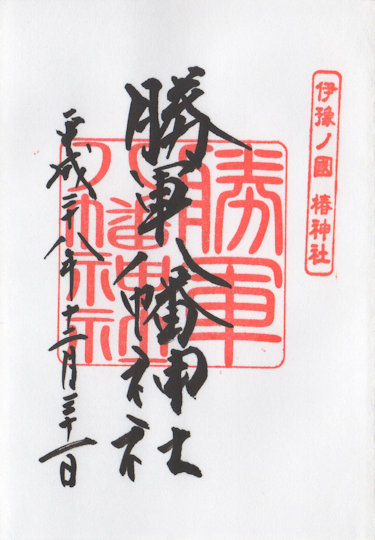 伊豫ノ國 椿神社
勝軍八幡神社
平成二十八年十二月三十一日